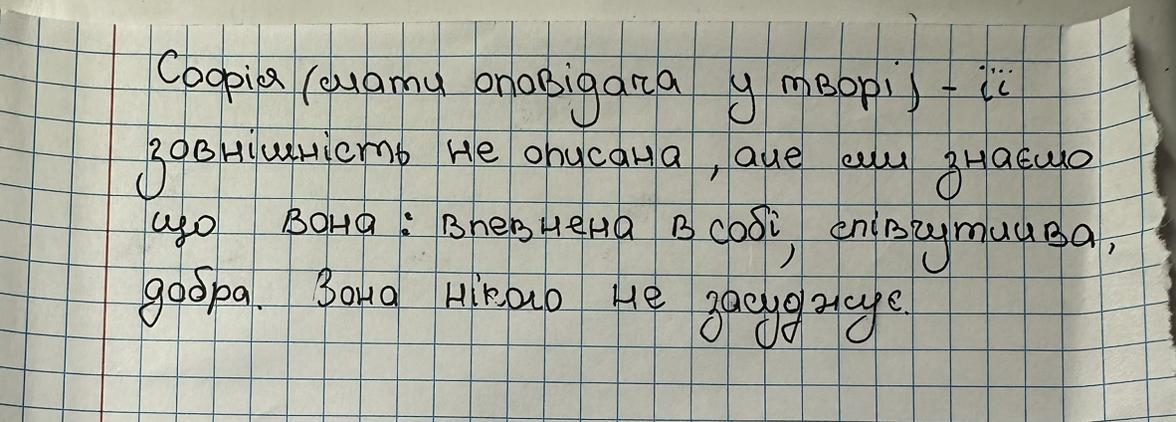 Софія (мати оповідача у творі) - її
зовнішність не описана, але ми знаємо
що вона: впевнена в собі, співчутлива,
добра. Вона нікого не засуджує.